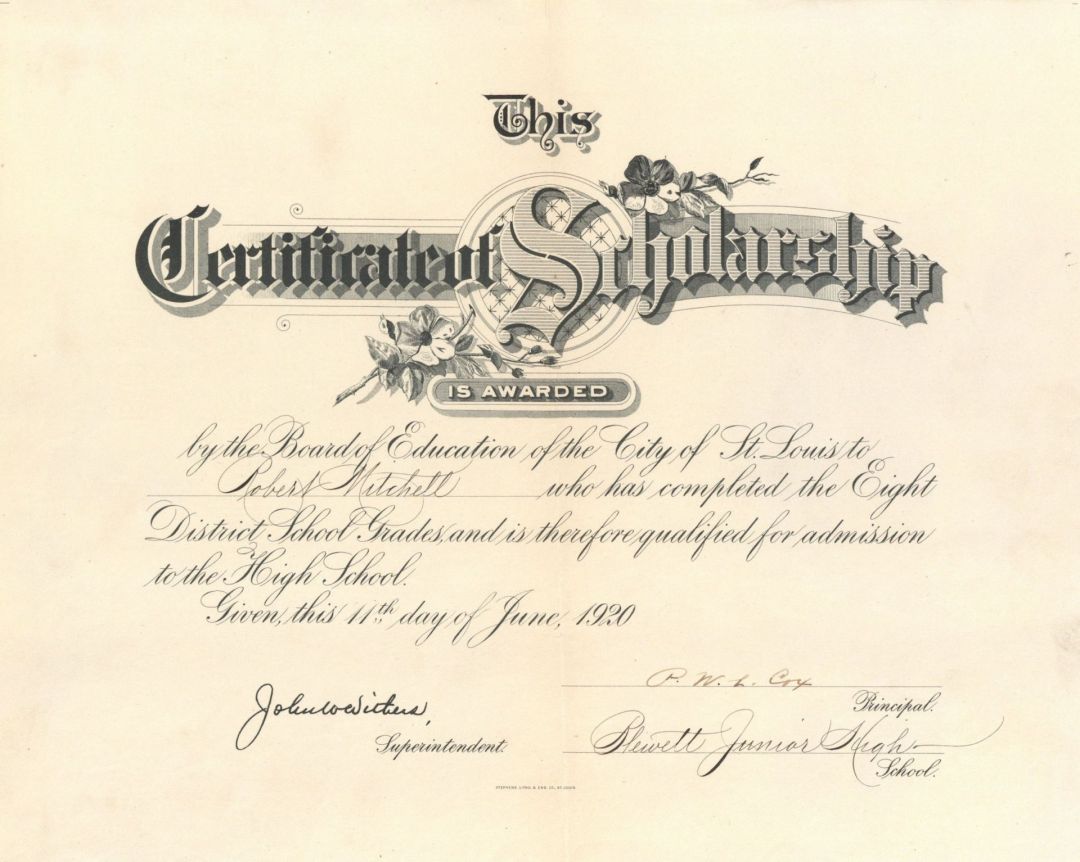 This
Certificate of Scholarship
IS AWARDED
by the Board of Education of the City of St. Louis to
Robert Mitchell who has completed the Eight
District School Grades, and is therefore qualified for admission
to the High School.
Given, this 11th day of June, 1920
P. W. L. Cox
Principal.
John W. Withers,
Superintendent.
Blewett Junior High
School.
STEPHENS LITHO. & ENG. CO., ST. LOUIS.